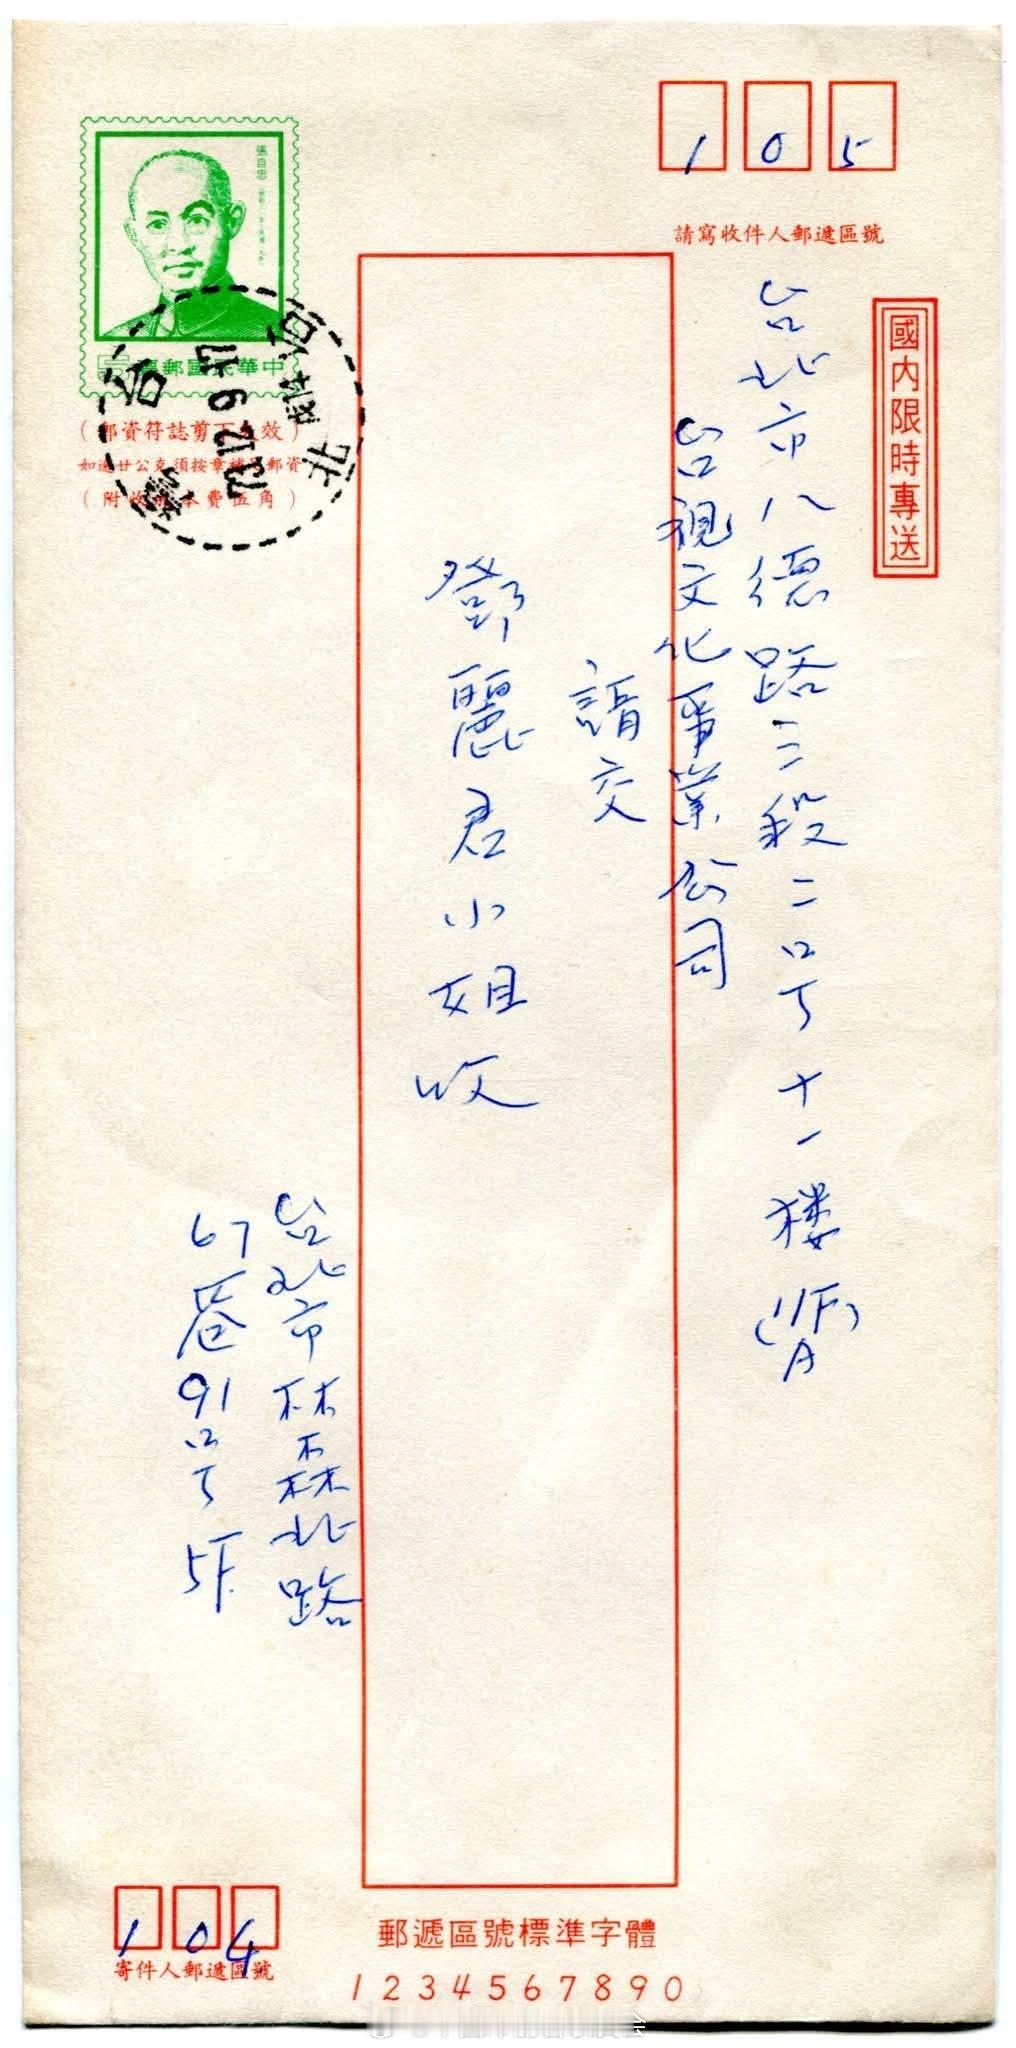 105
請寫收件人郵遞區號
國內限時專送
台北市八德路三段二号十一楼(11F)
A
台視文化事業公司
請交
鄧麗君小姐收
張自忠
中華民國郵票
(郵資符誌剪下無效)
如逾廿公克須按章補足郵資
(附收成本費伍角)
台北
73.12.6.17
台北市林森北路
67巷91号5F.
104
寄件人郵遞區號
郵遞區號標準字體
1234567890